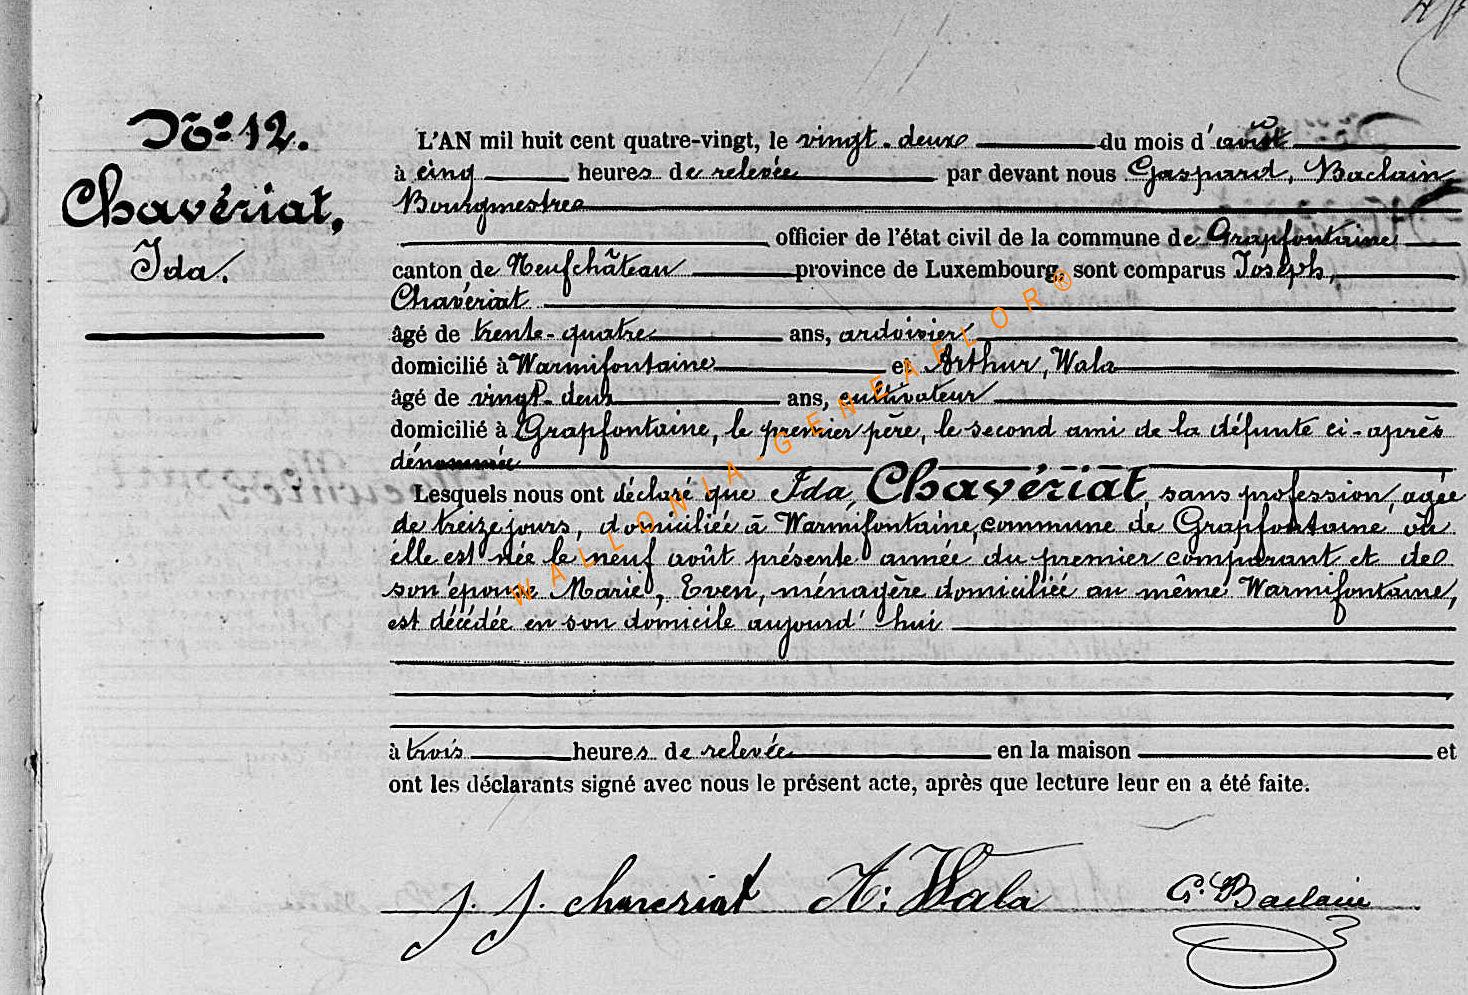 No. 12.
Chavériat,
Ida.
L'AN mil huit cent quatre-vingt, le vingt-deux du mois d'août
à cinq heures de relevée par devant nous Gaspard, Baclain
Bourgmestre
officier de l'état civil de la commune de Grapfontaine
canton de Neufchâteau province de Luxembourg, sont comparus Joseph,
Chavériat
âgé de trente-quatre ans, ardoisier
domicilié à Warmifontaine et Arthur, Wala
âgé de vingt-deux ans, cultivateur
domicilié à Grapfontaine, le premier père, le second ami de la défunte ci-après
dénommée
Lesquels nous ont déclaré que Ida, Chavériat sans profession, agée
de treize jours, domiciliée à Warmifontaine, commune de Grapfontaine, où
elle est née le neuf août présente année du premier comparant et de
son épouse Marie, Even, ménagère domiciliée au même Warmifontaine,
est décédée en son domicile aujourd'hui
à trois heures de relevée en la maison et
ont les déclarants signé avec nous le présent acte, après que lecture leur en a été faite.
J. J. chaveriat A: Wala G. Baclain
WALLONIA-GENEAFLOR®